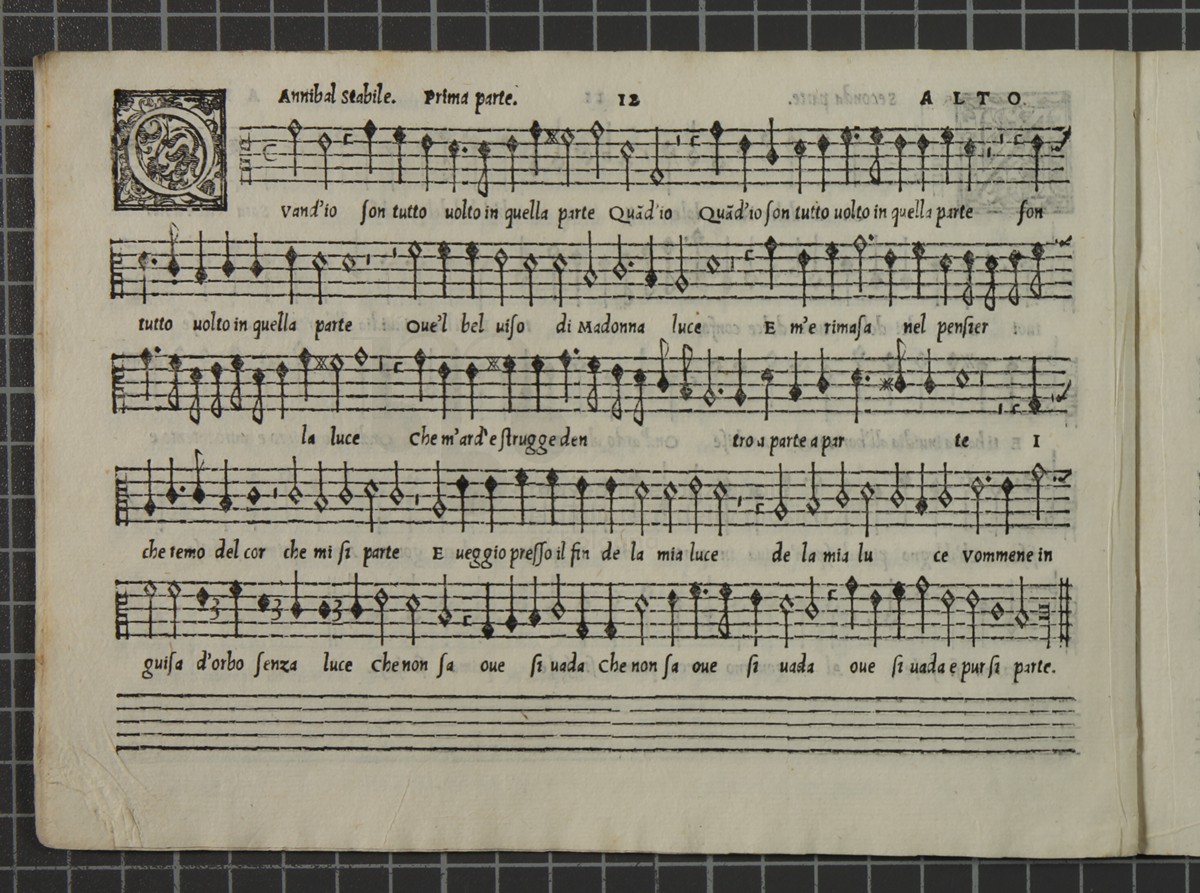 Annibal Stabile. Prima parte. 12 ALTO.
Qvand'io ſon tutto uolto in quella parte Quãd'io Quãd'io ſon tutto uolto in quella parte ſon
tutto uolto in quella parte Oue'l bel uiſo di Madonna luce E m'e rimaſa nel penſier
la luce Che m'ard'e ſtrugge den tro a parte a par te I
che temo del cor che mi ſi parte E ueggio preſſo il fin de la mia luce de la mia lu ce Vommene in
guiſa d'orbo ſenza luce Che non ſa oue ſi uada Che non ſa oue ſi uada oue ſi uada e pur ſi parte.